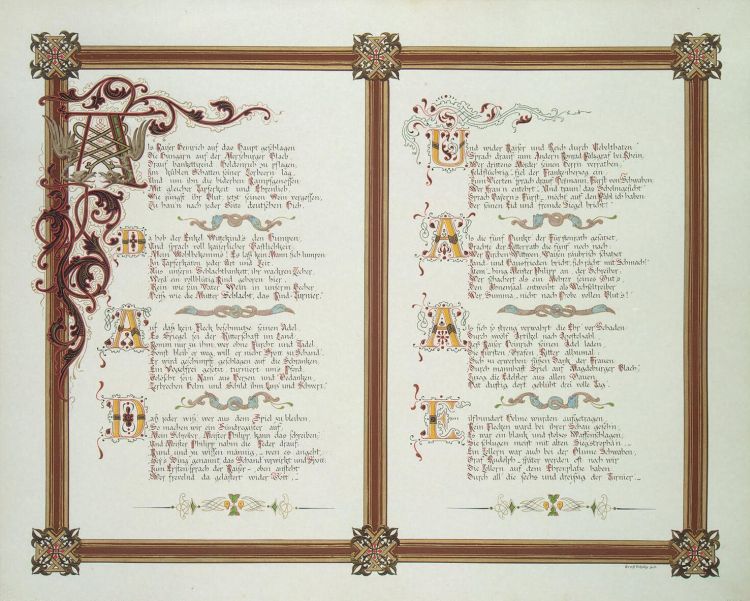 Als Kaiser Heinrich auf das Haupt geschlagen
Die Hungarn auf der Merseburger Flach,
Drauf banketirend Heldentritt zu pflegen,
Im kühlen Schatten seiner Lorbern lag,
Und um ihn die biderben Kampfgenossen,
Mit gleicher Tapferkeit und Ehrenlieb,
Wie jüngst ihr Blut, jetzt seinen Wein vergossen,
Zu hau'n nach jeder Seite deutschen Hieb.
Da hob der Enkel Wittekinds den Humpen,
Und sprach voll kaiserlicher Gastlichkeit:
Mein Wohlbekomms! Es laß kein Mann sich lumpen
In Tapferkeiten jeder Art und Zeit.
Aus unsern Schlachtbankett, ihr wackren Zecher,
Werd ein vollblütig Kind geboren hier,
Kein wie zum Vater Wein in unserm Becher
Heiß wie die Mutter Schlacht, das Kind Turnier.
Auf daß kein Fleck beschmutze seinen Adel,
Es Spiegel sei der Ritterschaft im Land,
Komm nur zu ihm, wer ohne Furcht und Tadel,
Sonst bleib er weg, will er nicht Spott zu Schand.
Er wird geschimpft, geschlagen auf die Schranken,
Ein Vogelfrei gesetzt, turniert um's Pferd,
Gelöscht sein Nam aus Versen und Gedanken,
Zerbrechen Helm und Schild ihm, Lanz und Schwert.
Daß jeder wiß, wer aus dem Spiel zu bleiben,
So machen wir ein Sündregister auf,
Mein Schreiber, Meister Philipp, kann das schreiben,
Und Meister Philipp nahm die Feder drauf.
Kund und zu wissen männig, wen es angeht,
Wes's Ding genannt, das Schand verwirkt und Spott:
Zum Ersten sprach der Kaiser – oben ansteht
Wer frevelnd da gelästert wider Gott,
Und wider Kaiser und Reich durch Uebelthaten
Sprach drauf zum Andern Konrad Pfalzgraf bei Rhein,
Wer drittens Mörder seinen Herrn verrathen,
Feldflüchtig, fiel der Frankenherzog ein.
Zum Vierten sprach drauf Hermann, Fürst von Schwaben:
Wer Frau'n entehrt. Und traun! das Schelmgesicht
Sprach Bayerns Fürst, möcht auf den Pfahl ich haben
Der seinen Eid und fremde Siegel bricht!
Als die fünf Punkt der Fürstenrath gesetzet,
Brachte der Ritterrath die fünf noch nach:
Wer Kirchen, Witwen, Waisen räubrisch schatzet
Land- und Hausfrieden bricht, sich zecht mit Schmach!
Item, hing Meister Philipp an der Schreiber:
Wer Schachert als ein Mehrer seines Gut's,
Den Ahnensaal entweiht als Wachsältreiber
Wer, Summa, nicht nach Probe vollen Blut's!
Als sich so streng verwahrt die Ehr vor Schaden
Durch zwölf Artikel nach Apostelzahl,
Ließ Kaiser Heinrich seinen Adel laden
Die Fürsten, Grafen, Ritter allzumal.
Sich zu erwerben süßen Dank der Frauen
Durch mannhaft Spiel auf Magdeburger Flach,
Zuzog die Edelster aus allen Gauen,
Mit duftig dort geblüht drei volle Tag.
Eilfhundert Helme wurden aufgetragen,
Kein Flecken ward bei ihrer Schau gesehn,
Es war ein blank und stolzes Waffenschlagen,
Sie schlugen meist mit alten Siegstrophän.
Ein Zollern war auch bei der Blume Schwaben,
Graf Rudolph, später werden oft noch wir
Die Zollern auf dem Ehrenplatze haben
Durch all die sechs und dreißig der Turnier.